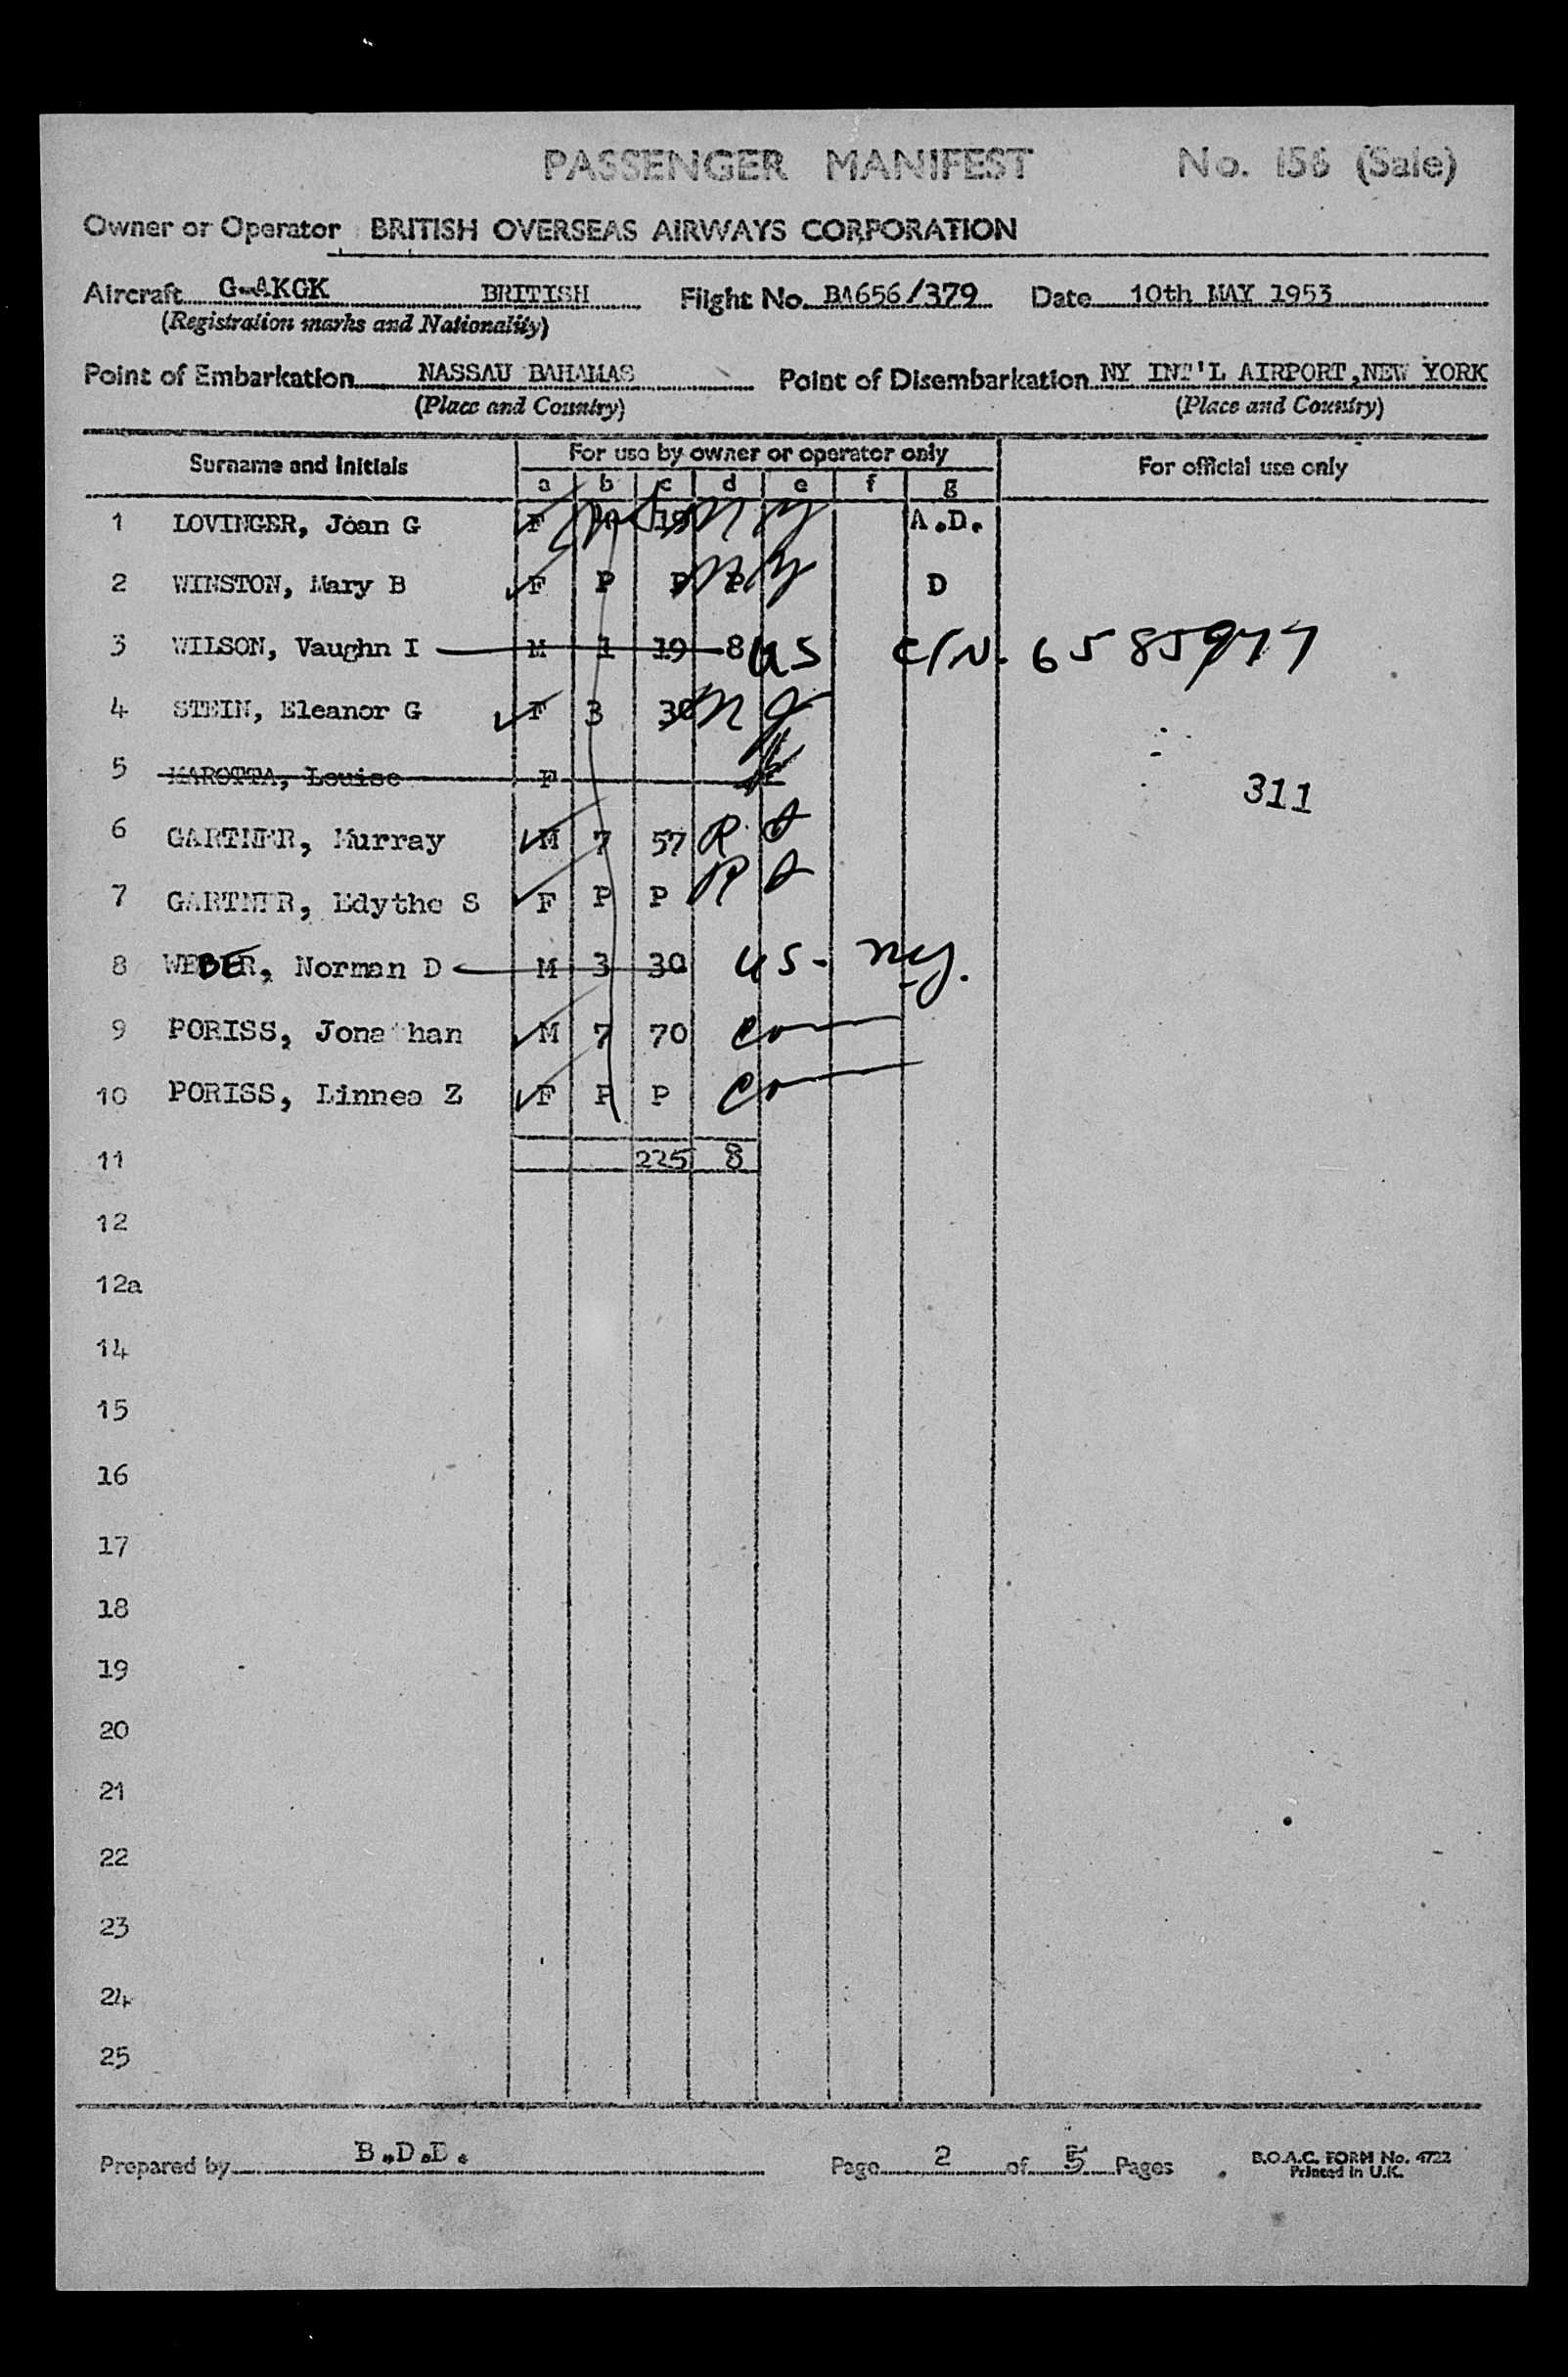 PASSENGER MANIFEST No. 156 (Sale)
Owner or Operator BRITISH OVERSEAS AIRWAYS CORPORATION
Aircraft G-AKGK BRITISH Flight No. BA656/379 Date 10th MAY 1953
(Registration marks and Nationality)
Point of Embarkation NASSAU BAHAMAS Point of Disembarkation NY INT'L AIRPORT, NEW YORK
(Place and Country) (Place and Country)
Surname and Initials For use by owner or operator only For official use only
a b c d e f g
1 LOVINGER, Joan G F 19 A.D.
2 WINSTON, Mary B F P P P D
3 WILSON, Vaughn I M 1 19 8 US C/N. 6585977
4 STEIN, Eleanor G F 3 30
5 MAROTTA, Louise F
311
6 GARTNER, Murray M 7 57
7 GARTNER, Edythe S F P P
8 WEBER, Norman D M 3 30 US- ny.
9 PORISS, Jonathan M 7 70
10 PORISS, Linnea Z F P P
11 225 8
12
12a
14
15
16
17
18
19
20
21
22
23
24
25
Prepared by B.D.D. Page 2 of 5 Pages B.O.A.C. FORM No. 4722
Printed in U.K.